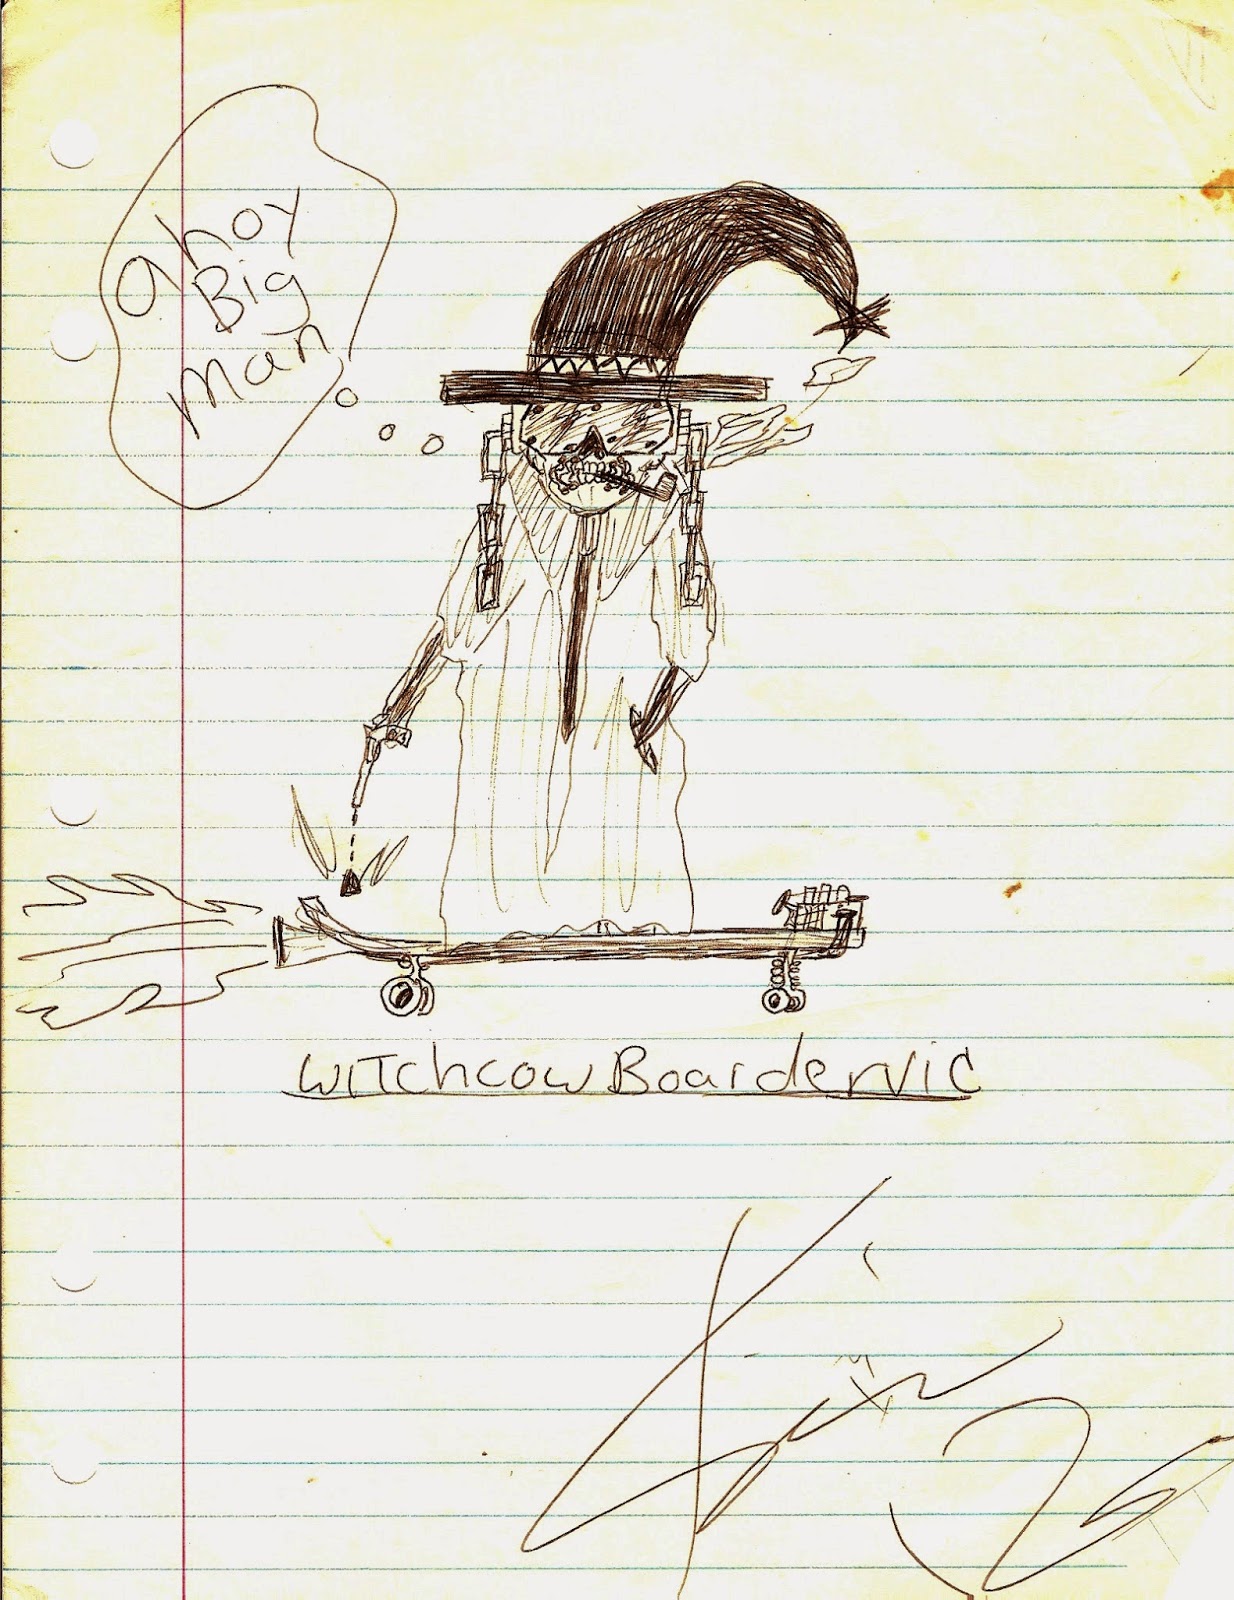 ahoy
Big
man
WITchcowBoardervic